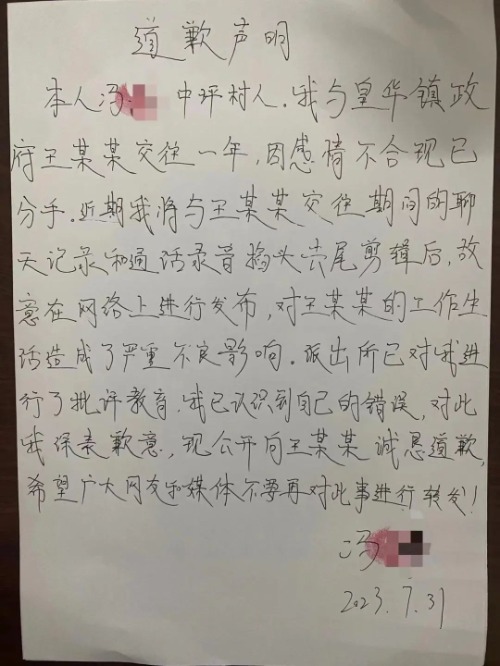 道歉声明
本人冯 中坪村人.我与皇华镇政
府王某某交往一年,因感情不合现已
分手.近期我将与王某某交往期间的聊
天记录和通话录音掐头去尾剪辑后,故
意在网络上进行发布,对王某某的工作生
活造成了严重不良影响.派出所已对我进
行了批评教育.我已认识到自己的错误,对此
我深表歉意,现公开向王某某诚恳道歉,
希望广大网友和媒体不要再对此事进行转发!
冯
2023.7.31